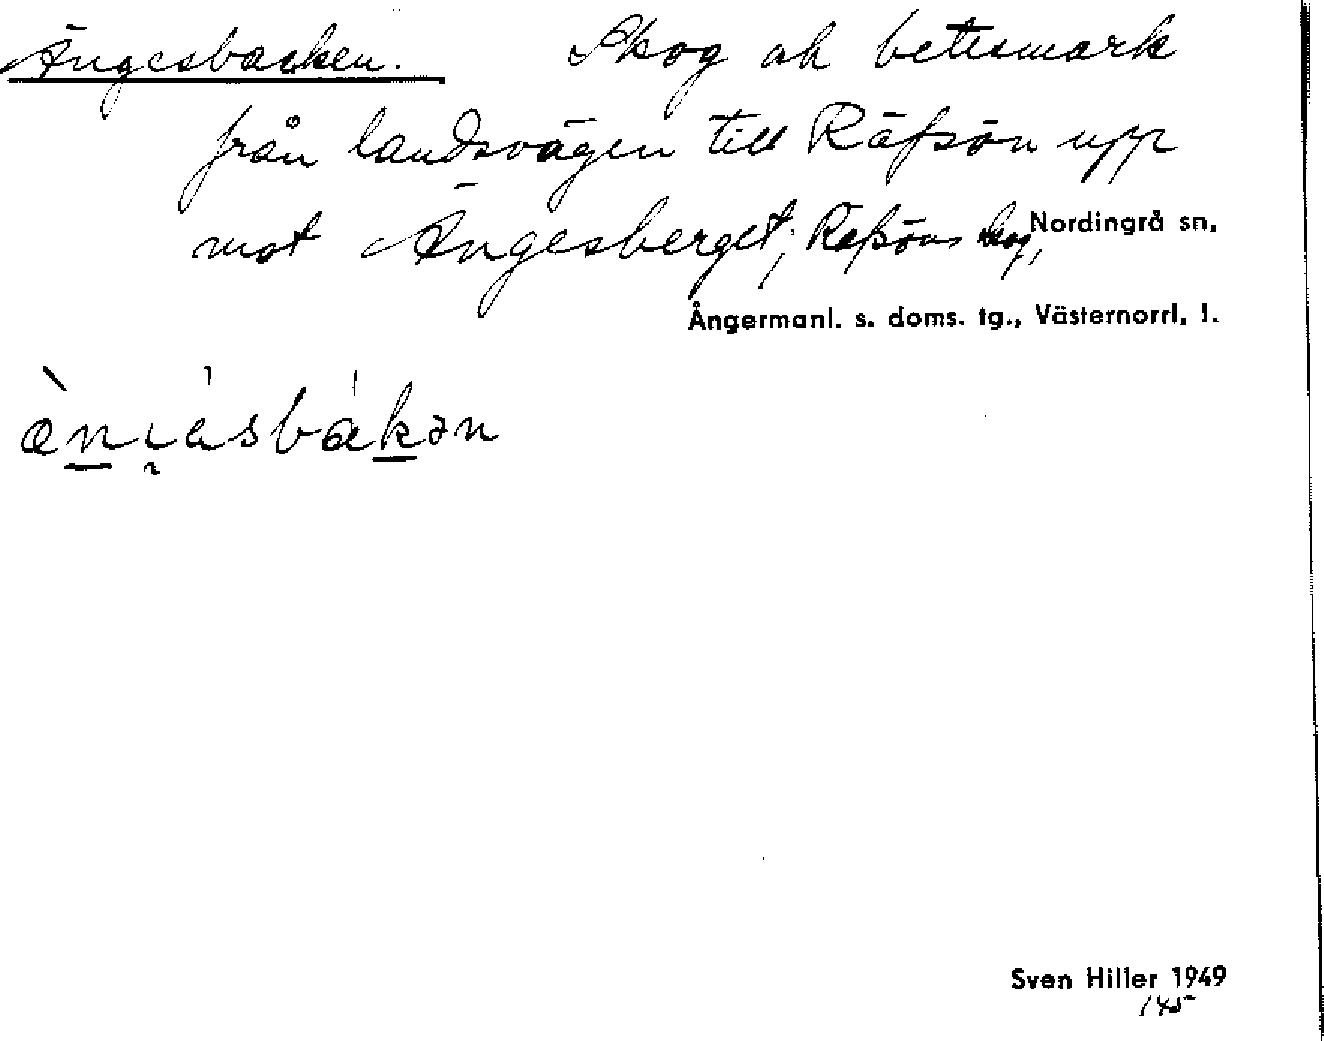 Ängesbacken. Skog ah betesmark
från landsvägen till Räfsön upp
mot Ängesberget; Räfsöns skog, Nordingrå sn,
Ångermanl. s. doms. tg., Västernorrl. l.
Sven Hiller 1949
145